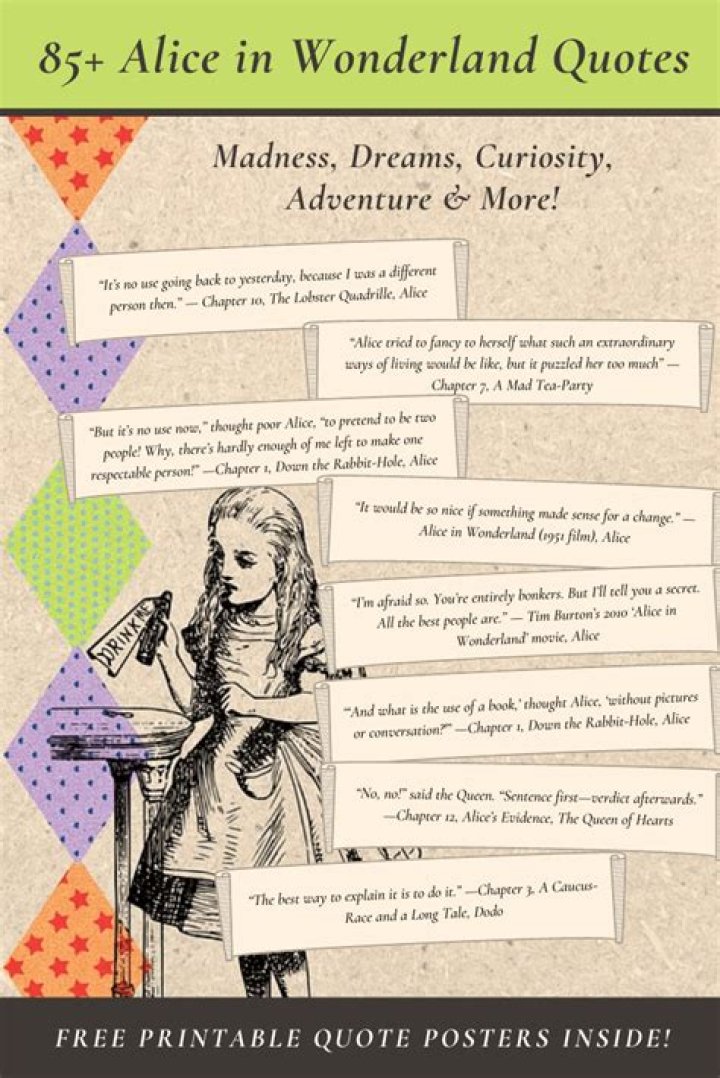 85+ Alice in Wonderland Quotes
Madness, Dreams, Curiosity,
Adventure & More!
“It’s no use going back to yesterday, because I was a different
person then.” — Chapter 10, The Lobster Quadrille, Alice
“Alice tried to fancy to herself what such an extraordinary
ways of living would be like, but it puzzled her too much” —
Chapter 7, A Mad Tea-Party
“But it’s no use now,” thought poor Alice, “to pretend to be two
people! Why, there’s hardly enough of me left to make one
respectable person!” —Chapter 1, Down the Rabbit-Hole, Alice
“It would be so nice if something made sense for a change.” —
Alice in Wonderland (1951 film), Alice
“I’m afraid so. You’re entirely bonkers. But I’ll tell you a secret.
All the best people are.” — Tim Burton’s 2010 ‘Alice in
Wonderland’ movie, Alice
DRINK ME
“‘And what is the use of a book,’ thought Alice, ‘without pictures
or conversation?’” —Chapter 1, Down the Rabbit-Hole, Alice
“No, no!” said the Queen. “Sentence first—verdict afterwards.”
—Chapter 12, Alice’s Evidence, The Queen of Hearts
“The best way to explain it is to do it.” —Chapter 3, A Caucus-
Race and a Long Tale, Dodo
FREE PRINTABLE QUOTE POSTERS INSIDE!